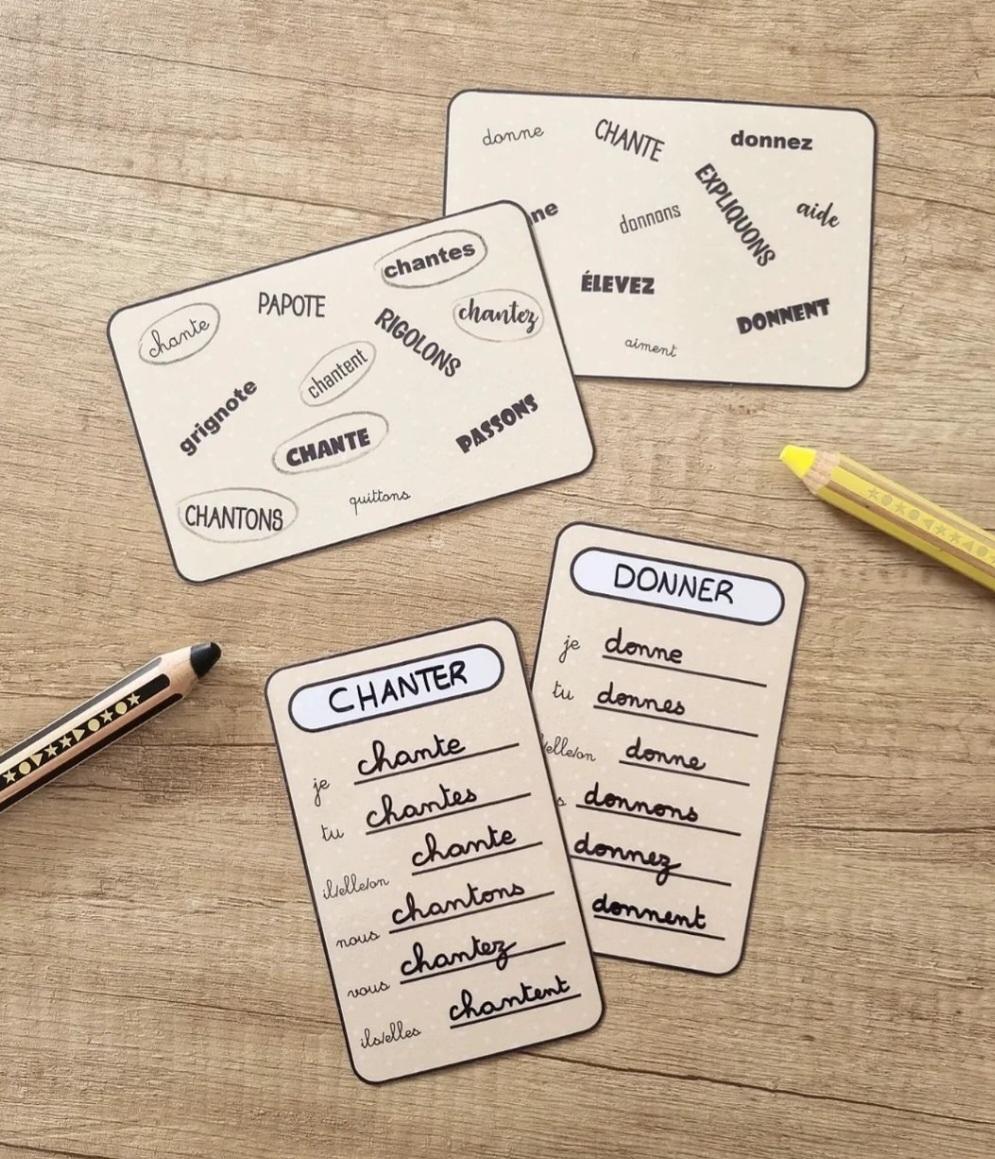 donne CHANTE donnez
EXPLIQUONS
ne donnons aide
ÉLEVEZ
DONNENT
aiment
chantes
PAPOTE
chante RIGOLONS chantez
chantent
grignote
CHANTE PASSONS
quittons
CHANTONS
DONNER
je donne
tu donnes
/elle/on donne
s donnons
donnez
donnent
CHANTER
je chante
tu chantes
il/elle/on chante
nous chantons
vous chantez
ils/elles chantent